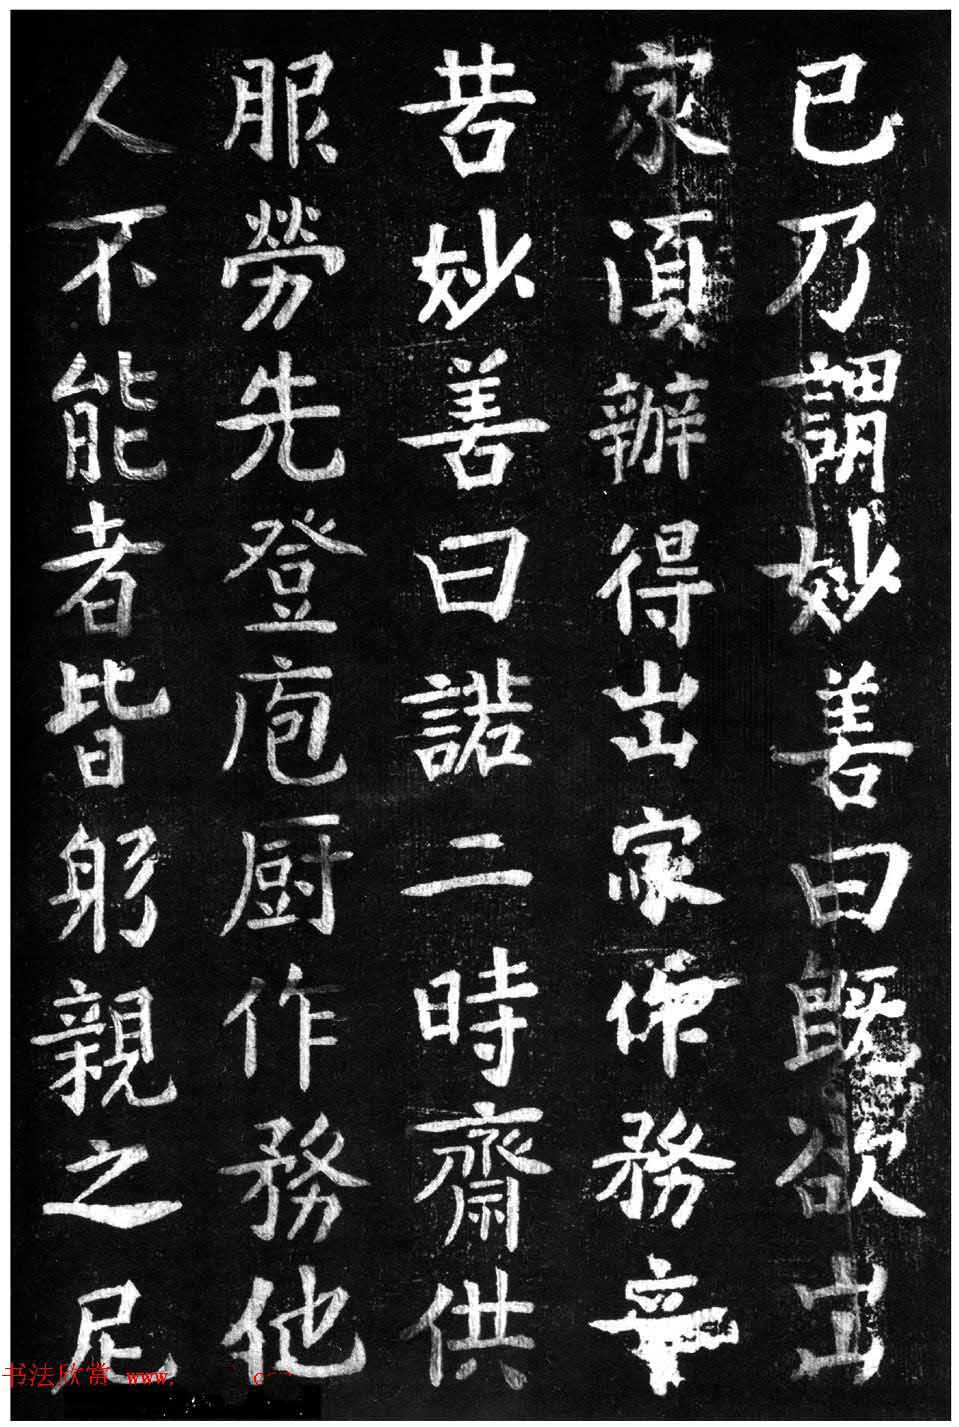 已乃謂妙善曰既欲出
家須辦得出家作務辛
苦妙善曰諾二時齋供
服勞先登庖厨作務他
人不能者皆躬親之尼
书法欣赏 www.